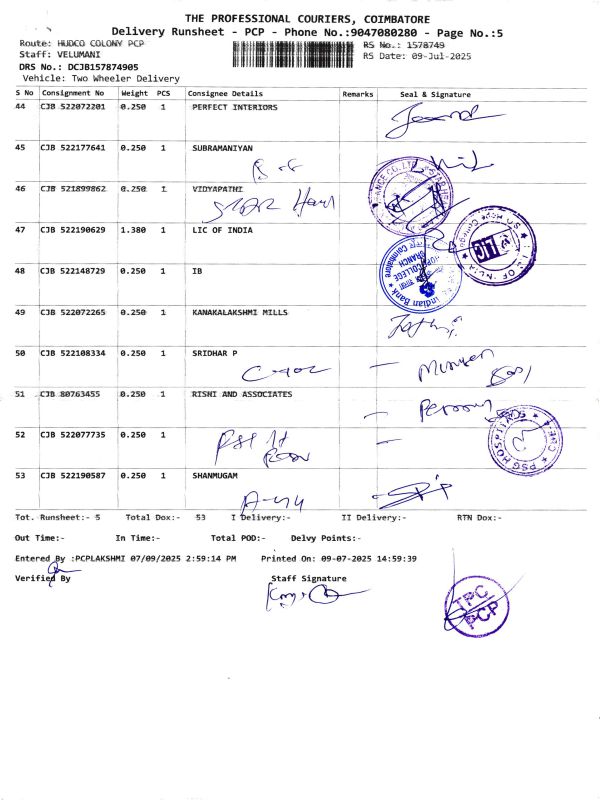 THE PROFESSIONAL COURIERS, COIMBATORE
Delivery Runsheet - PCP - Phone No.:9047080280 - Page No.:5
Route: HUDCO COLONY PCP RS No.: 1578749
Staff: VELUMANI RS Date: 09-Jul-2025
DRS No.: DCJB157874905
Vehicle: Two Wheeler Delivery
S No Consignment No Weight PCS Consignee Details Remarks Seal & Signature
44 CJB 522072201 0.250 1 PERFECT INTERIORS
45 CJB 522177641 0.250 1 SUBRAMANIYAN
46 CJB 521899862 0.250 1 VIDYAPATHI
47 CJB 522190629 1.380 1 LIC OF INDIA
LIC
48 CJB 522148729 0.250 1 IB
Indian Bank
49 CJB 522072265 0.250 1 KANAKALAKSHMI MILLS
50 CJB 522108334 0.250 1 SRIDHAR P
51 CJB 80763455 0.250 1 RISHI AND ASSOCIATES
52 CJB 522077735 0.250 1
PSG HOSPITALS
53 CJB 522190587 0.250 1 SHANMUGAM
Tot. Runsheet:- 5 Total Dox:- 53 I Delivery:- II Delivery:- RTN Dox:-
Out Time:- In Time:- Total POD:- Delvy Points:-
Entered By :PCPLAKSHMI 07/09/2025 2:59:14 PM Printed On: 09-07-2025 14:59:39
Verified By Staff Signature
TPC
PCP